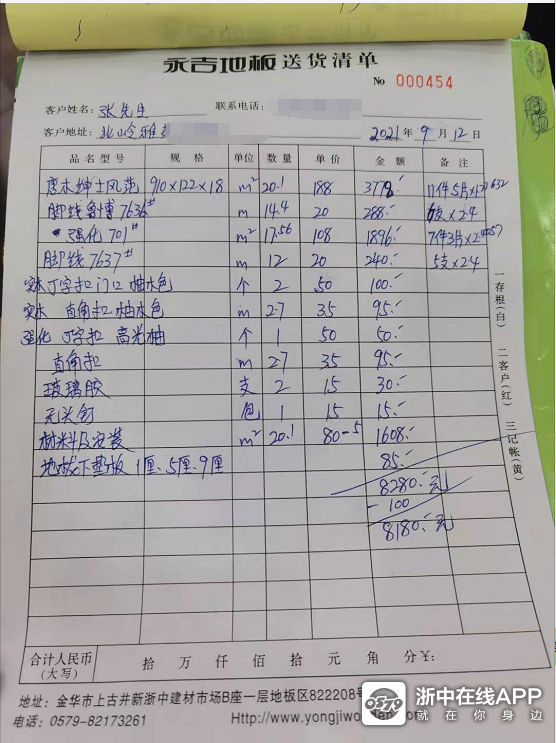 永吉地板 送货清单
No 000454
客户姓名: 张先生 联系电话:
客户地址: 北山岭雅 2021年9月12日
品名型号 规格 单位 数量 单价 金额 备注
910×122×18 m² 20.1 188 3778.-
脚线 7636# m 14.4 20 288.- 6支×2.4
强化 701# m² 17.56 108 1896.-
脚线 7637# m 12 20 240.- 5支×2.4
实木J字扣门口 柚木色 个 2 50 100.-
实木 直角扣 柚木色 m 2.7 35 95.-
强化 J字扣 高光柚 个 1 50 50.-
直角扣 m 2.7 35 95.-
玻璃胶 支 2 15 30.-
无头钉 包 1 15 15.-
材料及安装 m² 20.1 80-5 1608.-
地板下垫板 1厘、5厘、9厘 85.-
8280.-元
-100
8180.-元
一存根(白) 二客户(红) 三记帐(黄)
合计人民币(大写) 拾 万 仟 佰 拾 元 角 分¥:
地址: 金华市上古井新浙中建材市场B座一层地板区822208号
电话: 0579-82173261 Http://www.yongjiwo
0579 浙中在线APP
就在你身边